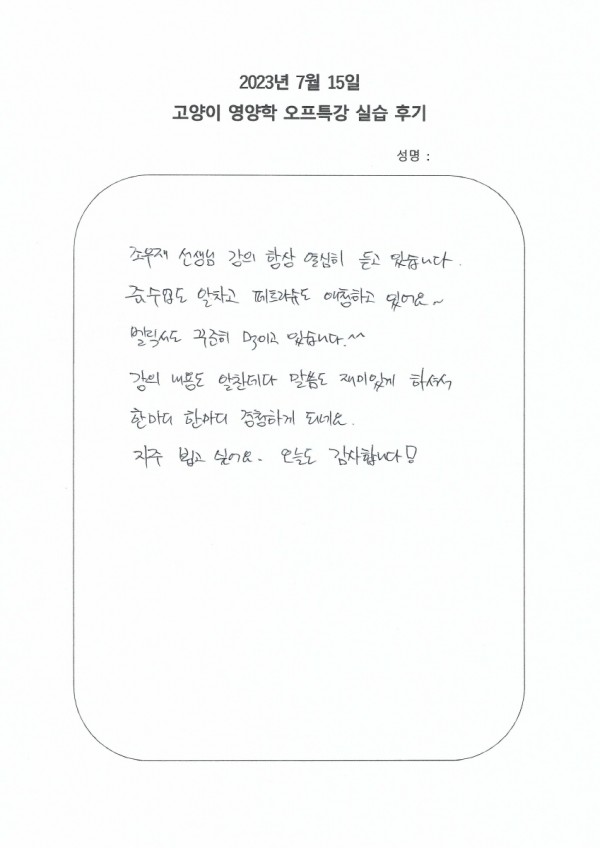 2023년 7월 15일
고양이 영양학 오프특강 실습 후기
성명 :
조우재 선생님 강의 항상 열심히 듣고 있습니다.
줌수업도 알차고 페트라슈도 애청하고 있어요~
벨릭서도 꾸준히 먹이고 있습니다.^^
강의 내용도 알찬데다 말씀도 재미있게 하셔서
한마디 한마디 경청하게 되네요.
자주 뵙고 싶어요. 오늘도 감사합니다!